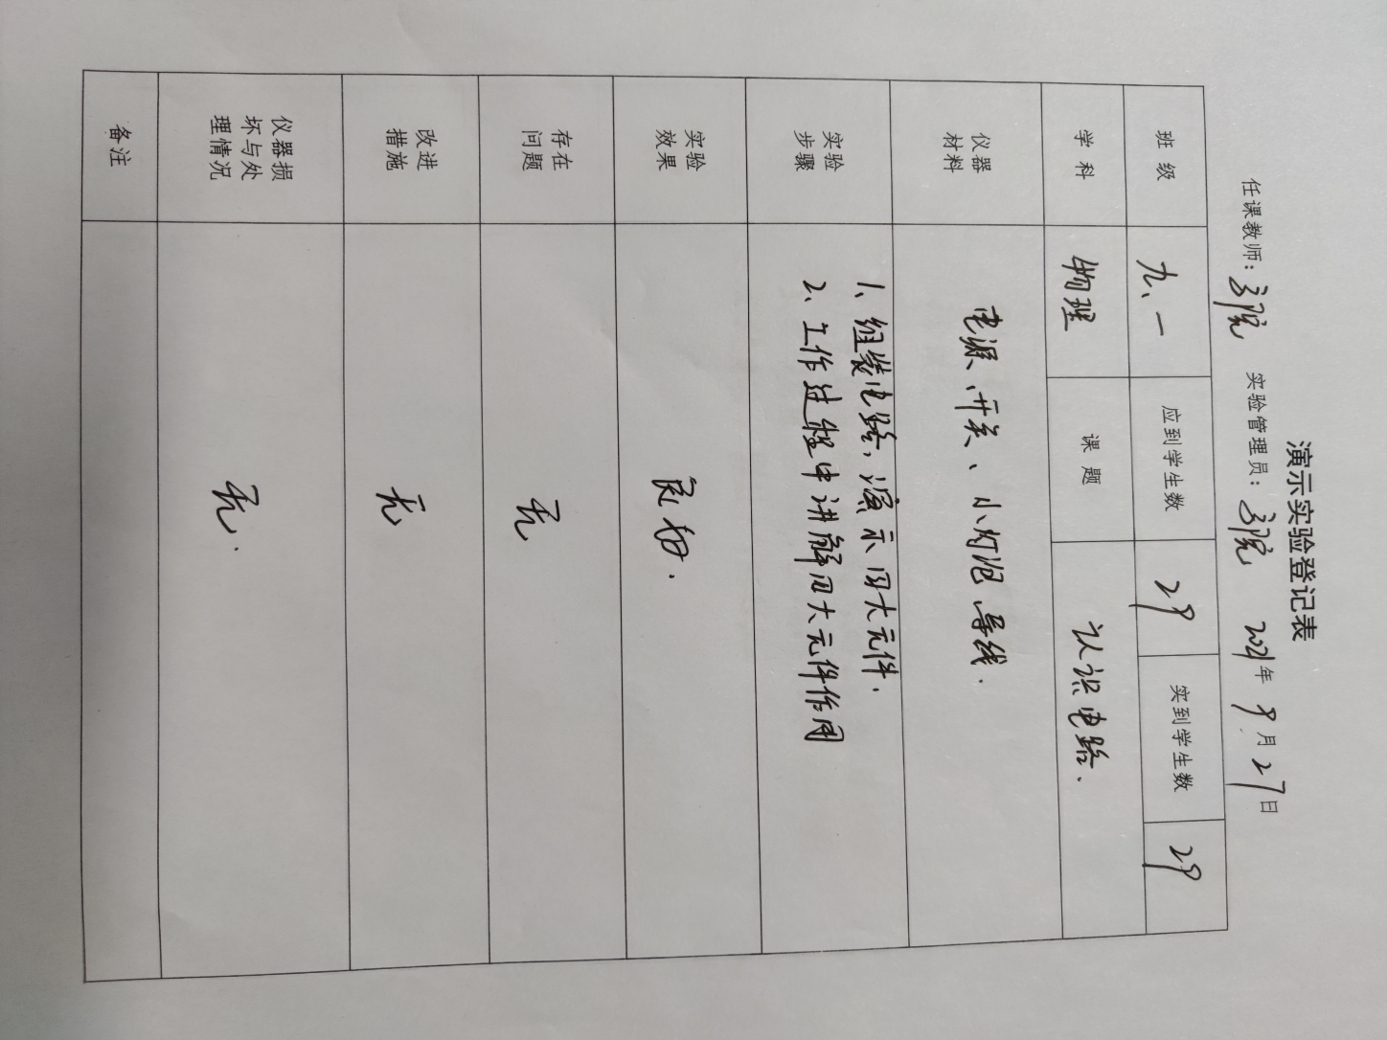 演示实验登记表
任课教师： 实验管理员： 2021年 9月 27日
班级 九、一 应到学生数 29 实到学生数 29
学科 物理 课题 认识电路.
仪器
材料
电源、开关、小灯泡、导线.
实验
步骤
1、组装电路，演示四大元件.
2、工作过程中讲解四大元件作用
实验
效果
良好.
存在
问题
无
改进
措施
无
仪器损
坏与处
理情况
无.
备注